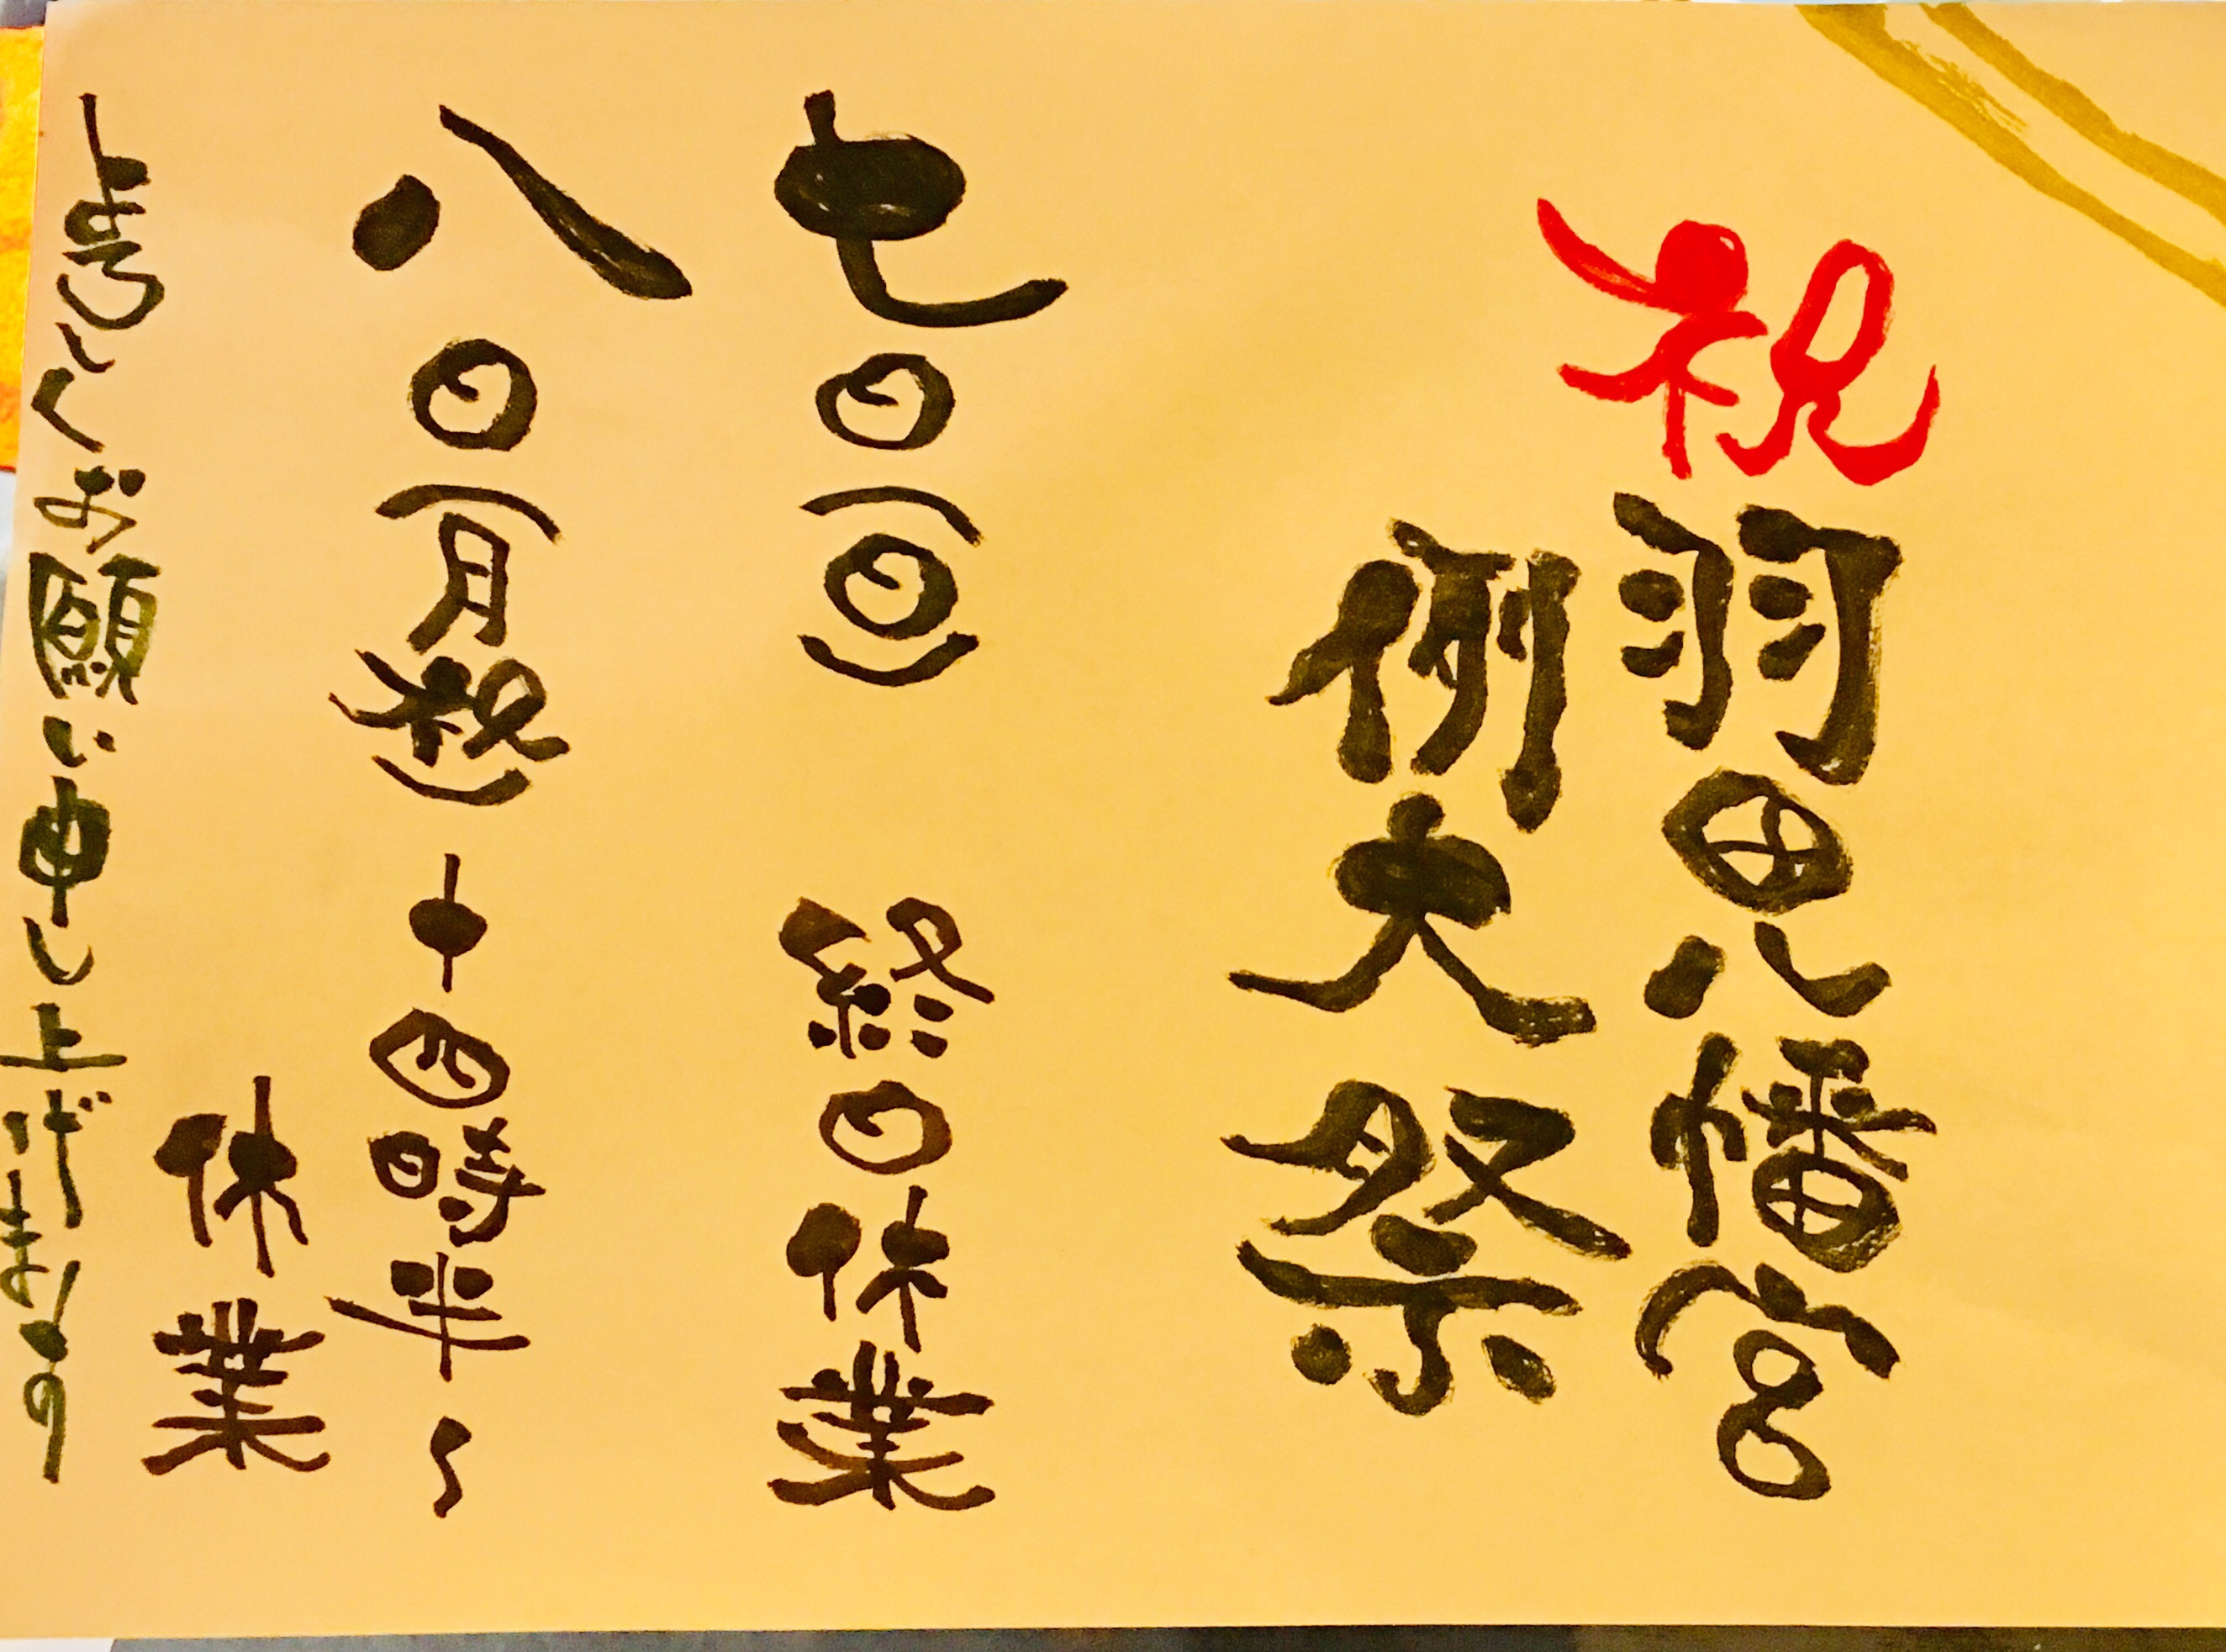 祝 羽田八幡宮
例大祭
七日(日) 終日休業
八日(月祝)十四時半〜
休業
よろしくお願い申し上げます